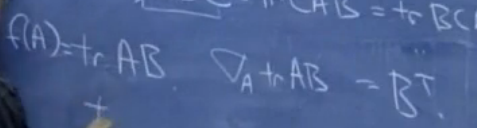 CAB = tr BCA
f(A) = tr AB. ∇_A tr AB = Bᵀ.